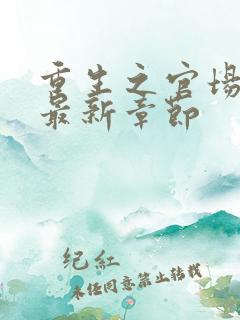 重生之官场
最新章节
纪红
未经同意禁止转载